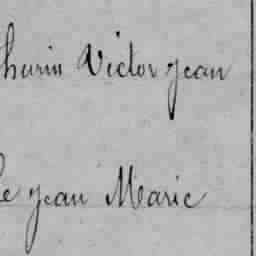 thurin Victor Jean
le Jean Marie